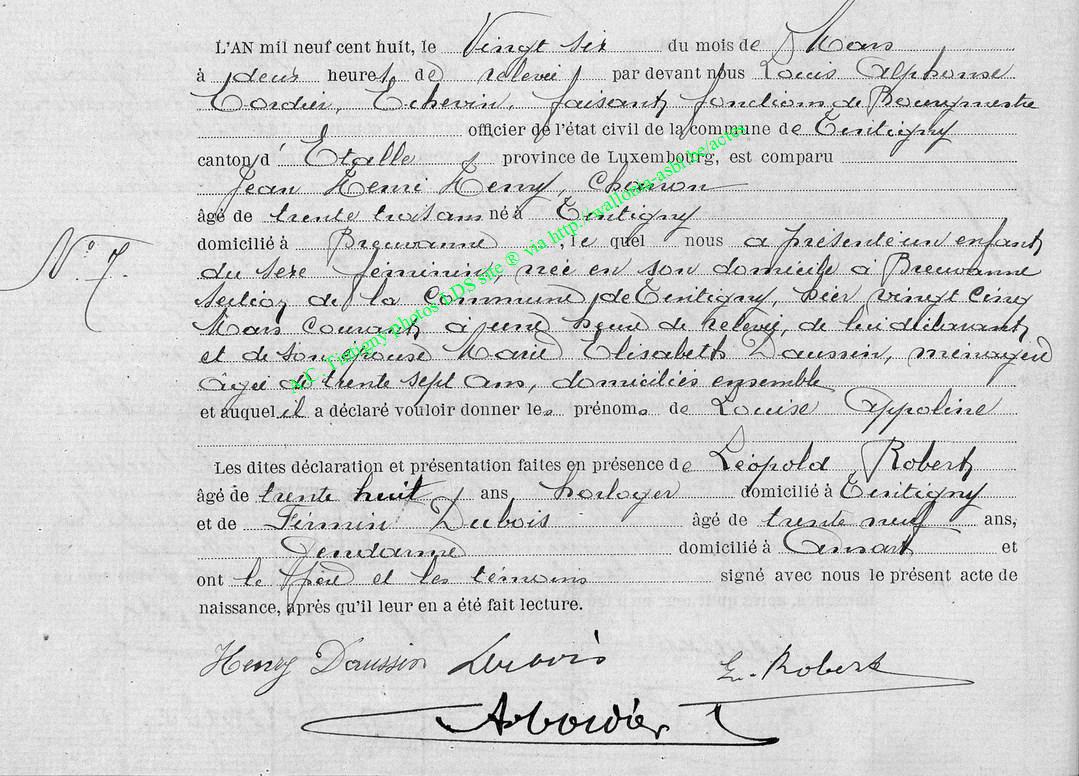 L'AN mil neuf cent huit, le Vingt six du mois de Mars
à deux heures de relevée par devant nous Louis Alphonse
Cordier, Echevin, faisant fonctions de Bourgmestre
officier de l'état civil de la commune de Tintigny
canton d' Etalle province de Luxembourg, est comparu
Jean Henri Henry, Charron
âgé de trente trois ans né à Tintigny
domicilié à Breuvanne, le quel nous a présenté un enfant
N° 7.
du sexe féminin, née en son domicile à Breuvanne
section de la Commune de Tintigny, hier vingt cinq
Mars courant, à une heure de relevée, de lui déclarant
et de son épouse Marie Elisabeth Daussin, ménagère
âgée de trente sept ans, domiciliés ensemble
et auquel il a déclaré vouloir donner les prénoms de Louise Appoline
Les dites déclaration et présentation faites en présence de Léopold Robert
âgé de trente huit ans, horloger domicilié à Tintigny
et de Firmin Dubois âgé de trente neuf ans,
Gendarme domicilié à Ansart et
ont le père et les témoins signé avec nous le présent acte de
naissance, après qu'il leur en a été fait lecture.
Henry Daussin Dubois L. Robert
A. Cordier
A.C. Tintigny photos LDS site ® via http://wallonia-asbl.be/actes